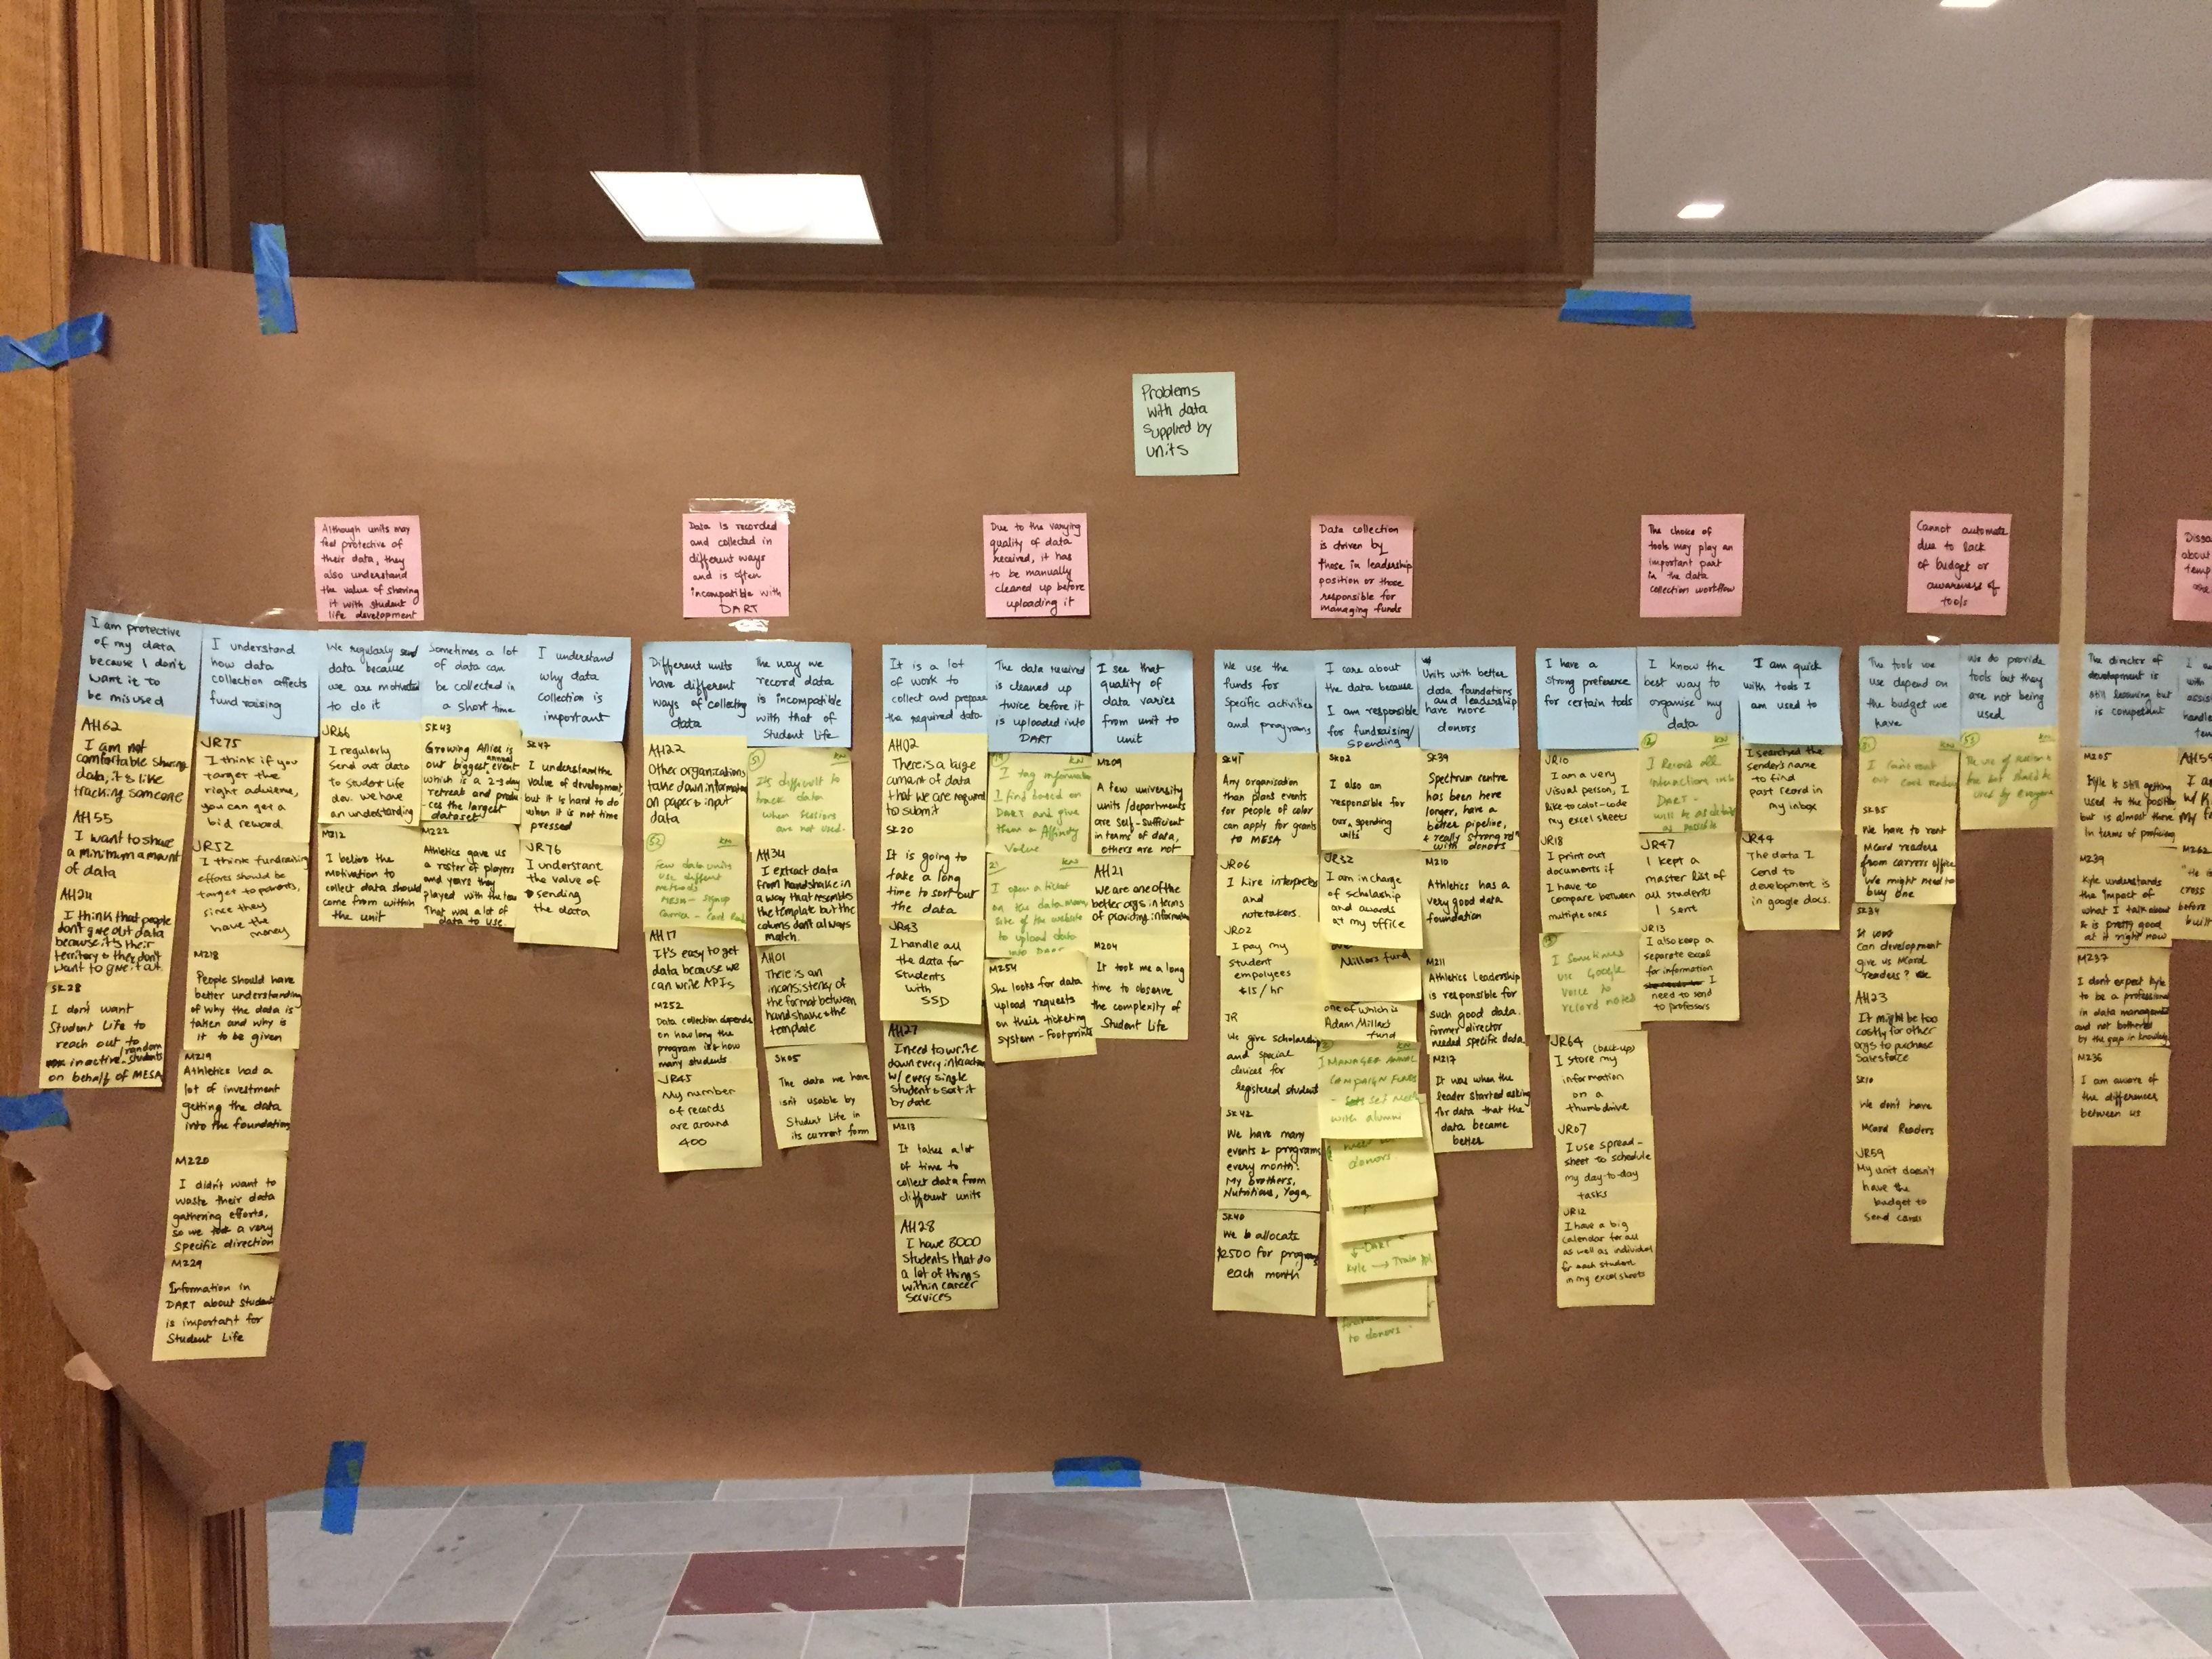 Problems
with data
supplied by
units
Although units may
feel protective of
their data, they
also understand
the value of sharing
it with student
life development
Data is recorded
and collected in
different ways
and is often
incompatible with
DART
Due to the varying
quality of data
received, it has
to be manually
cleaned up before
uploading it
Data collection
is driven by
those in leadership
position or those
responsible for
managing funds
The choice of
tools may play an
important part
in the data
collection workflow
Cannot automate
due to lack
of budget or
awareness of
tools
about
temp
I am protective
of my data
because I don't
want it to
be misused
AH62
I am not
comfortable sharing
data, it's like
tracking someone
AH55
I want to share
a minimum amount
of data
AH24
I think that people
don't give out data
because it's their
territory & they don't
want to give it out
SK28
I don't want
Student Life to
reach out to
inactive/random students
on behalf of MESA
I understand
how data
collection affects
fund raising
JR75
I think if you
target the
right audience,
you can get a
bid reward.
JR52
I think fundraising
efforts should be
target to parents,
since they
have the
money
M218
People should have
better understanding
of why the data is
taken and why is
it to be given
M219
Athletics had a
lot of investment
getting the data
into the foundation
M220
I didn't want to
waste their data
gathering efforts,
so we took a very
specific direction
M229
Information in
DART about student
is important for
Student Life
We regularly send
data because
we are motivated
to do it
JR66
I regularly
send out data
to student life
dev. we have
an understanding
M212
I believe the
motivation to
collect data should
come from within
the unit
Sometimes a lot
of data can
be collected in
a short time
SK43
Growing Allies is
our biggest annual event
which is a 2-3 day
retreat and produ
-ces the largest
dataset
M222
Athletics gave us
a roster of players
and years they
played with the team
That was a lot of
data to use.
I understand
why data
collection is
important
SK47
I understand the
value of development,
but it is hard to do
when it is not time
pressed
JR76
I understant
the value of
sending
the data
Different units
have different
ways of collecting
data
AH22
Other organizations
take down information
on paper & input
data
52 KN
Few data units
use different
methods
MESA - signup
Carrier - Card
AH17
It's easy to get
data because we
can write APIs
M252
Data collection depends
on how long the
program is & how
many students
JR45
My number
of records
are around
400
The way we
record data
is incompatible
with that of
Student Life
51 KN
It's difficult to
track data
when sessions
are not used.
AH34
I extract data
from handshake in
a way that resembles
the template but the
columns don't always
match.
AH01
There is an
inconsistency of
the format between
handshake & the
template
SK05
The data we have
isn't usable by
Student Life in
its current form
It is a lot
of work to
collect and prepare
the required data
AH02
There is a huge
amount of data
that we are required
to submit
SK20
It is going to
take a long
time to sort out
the data
JR43
I handle all
the data for
students
with
SSD
AH27
I need to write
down every interaction
w/ every single
student & sort it
by date
M213
It takes a lot
of time to
collect data from
different units
AH28
I have 8000
students that do
a lot of things
within career
services
The data received
is cleaned up
twice before it
is uploaded into
DART
19 KN
I tag information
I find based on
DART and give
them a Affinity
Value
21 KN
I open a ticket
on the data many
site of the website
to upload data
into DART
M254
She looks for data
upload requests
on their ticketing
system - footprints
I see that
quality of
data varies
from unit to
unit
M209
A few university
units/departments
are self-sufficient
in terms of data,
others are not
AH21
We are one of the
better orgs in terms
of providing information
M204
It took me a long
time to observe
the complexity of
Student Life
We use the
funds for
specific activities
and programs
SK41
Any organisation
than plans events
for people of color
can apply for grants
to MESA
JR06
I hire interpreters
and
notetakers.
JR02
I pay my
student
empolyees
$15/hr
JR
We give scholarship
and special
devices for
registered student
SK42
We have many
events & programs
every month:
My brothers,
Nutritious, Yoga,
SK40
We allocate
$2500 for programs
each month
I care about
the data because
I am responsible
for fundraising/
spending
SK02
I also am
responsible for
our spending
units
JR32
I am in charge
of scholaship
and awards
at my office
over
Millars fund
one of which is
Adam/Millers
fund
KN
I MANAGER ANNUAL
CAMPAIGN FUNDS
with alumni
donors
DART
Kyle → Train
to donors
Units with better
data foundations
and leadership
have more
donors
SK39
Spectrum centre
has been here
longer, have a
better pipeline,
& really strong reln
with donors
M210
Athletics has a
very good data
foundation
M211
Athletics leadership
is responsible for
such good data.
Former director
needed specific data.
M217
It was when the
leader started asking
for data that the
data became
better
I have a
strong preference
for certain tools
JR10
I am a very
visual person, I
like to color-code
my excel sheets
JR18
I print out
documents if
I have to
compare between
multiple ones
I sometimes
use Google
Voice to
record notes
JR64
(back-up)
I store my
information
on a
thumbdrive
JR07
I use spread-
sheet to schedule
my day-to-day
tasks
JR12
I have a big
calendar for all
as well as individual
for each student
in my excel sheets
I know the
best way to
organise my
data
2 KN
I Record all
interactions into
DART -
will be as detailed
as possible
JR47
I kept a
master list of
all students
I sent
JR13
I also keep a
separate excel
for information
I
need to send
to professors
I am quick
with tools I
am used to
I searched the
sender's name
to find
past record in
my inbox
JR44
The data I
send to
development is
in google docs.
The tools we
use depend on
the budget we
have
KN
SK35
We have to rent
Mcard readers
from carrers office
We might need to
buy one
SK34
can development
give us Mcard
readers?
AH23
It might be too
costly for other
orgs to purchase
Salesforce
SK10
We don't have
Mcard Readers
JR59
My unit doesn't
have the
budget to
send cards
We do provide
tools but they
are not being
used
53
used by everyone
The director of
development is
still learning but
is competent
M205
Kyle is still getting
used to the position
but is almost there
in terms of
M239
Kyle understands
the impact of
what I talk about
& is pretty good
at it right now
M237
I don't expect Kyle
to be a professional
in data management
and not bothered
by the gap in knowledge
M236
I am aware of
the differences
between us
with
AH59
M262
cross
before
built